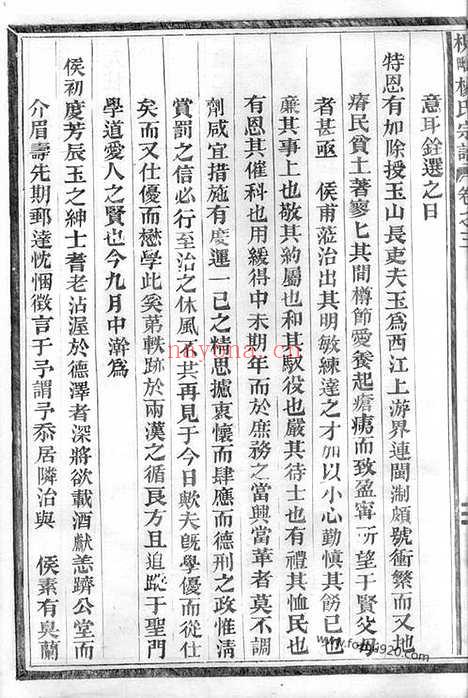 楊氏宗譜 卷之二
意耳銓選之日
特恩有加除授玉山長吏夫玉為西江上游界連閩淛頗號衝繁而又地
瘠民貧土著寥匕其間樽節愛養起瘡痍而致盈寧所望于賢父母
者甚亟 侯甫蒞治出其明敏練達之才加以小心勤慎其飭已也
廉其事上也敬其約屬也和其馭役也嚴其待士也有禮其恤民也
有恩其催科也用緩得中未期年而於庶務之當興當革者莫不調
劑咸宜措施有度運一已之精思攄衷懷而肆應而德刑之政惟淸
賞罰之信必行至治之休風不其再見于今日歟夫既學優而從仕
矣而又仕優而懋學此矣弟軼跡於兩漢之循良方且追蹤于聖門
學道愛人之賢也今九月中澣為
侯初慶芳辰玉之紳士耆老沾渥於德澤者深將欲載酒獻恙躋公堂而
介眉壽先期郵達忱悃徵言于予謂予忝居隣治與 侯素有臭蘭
nayona.cn
www.foxys1920.com